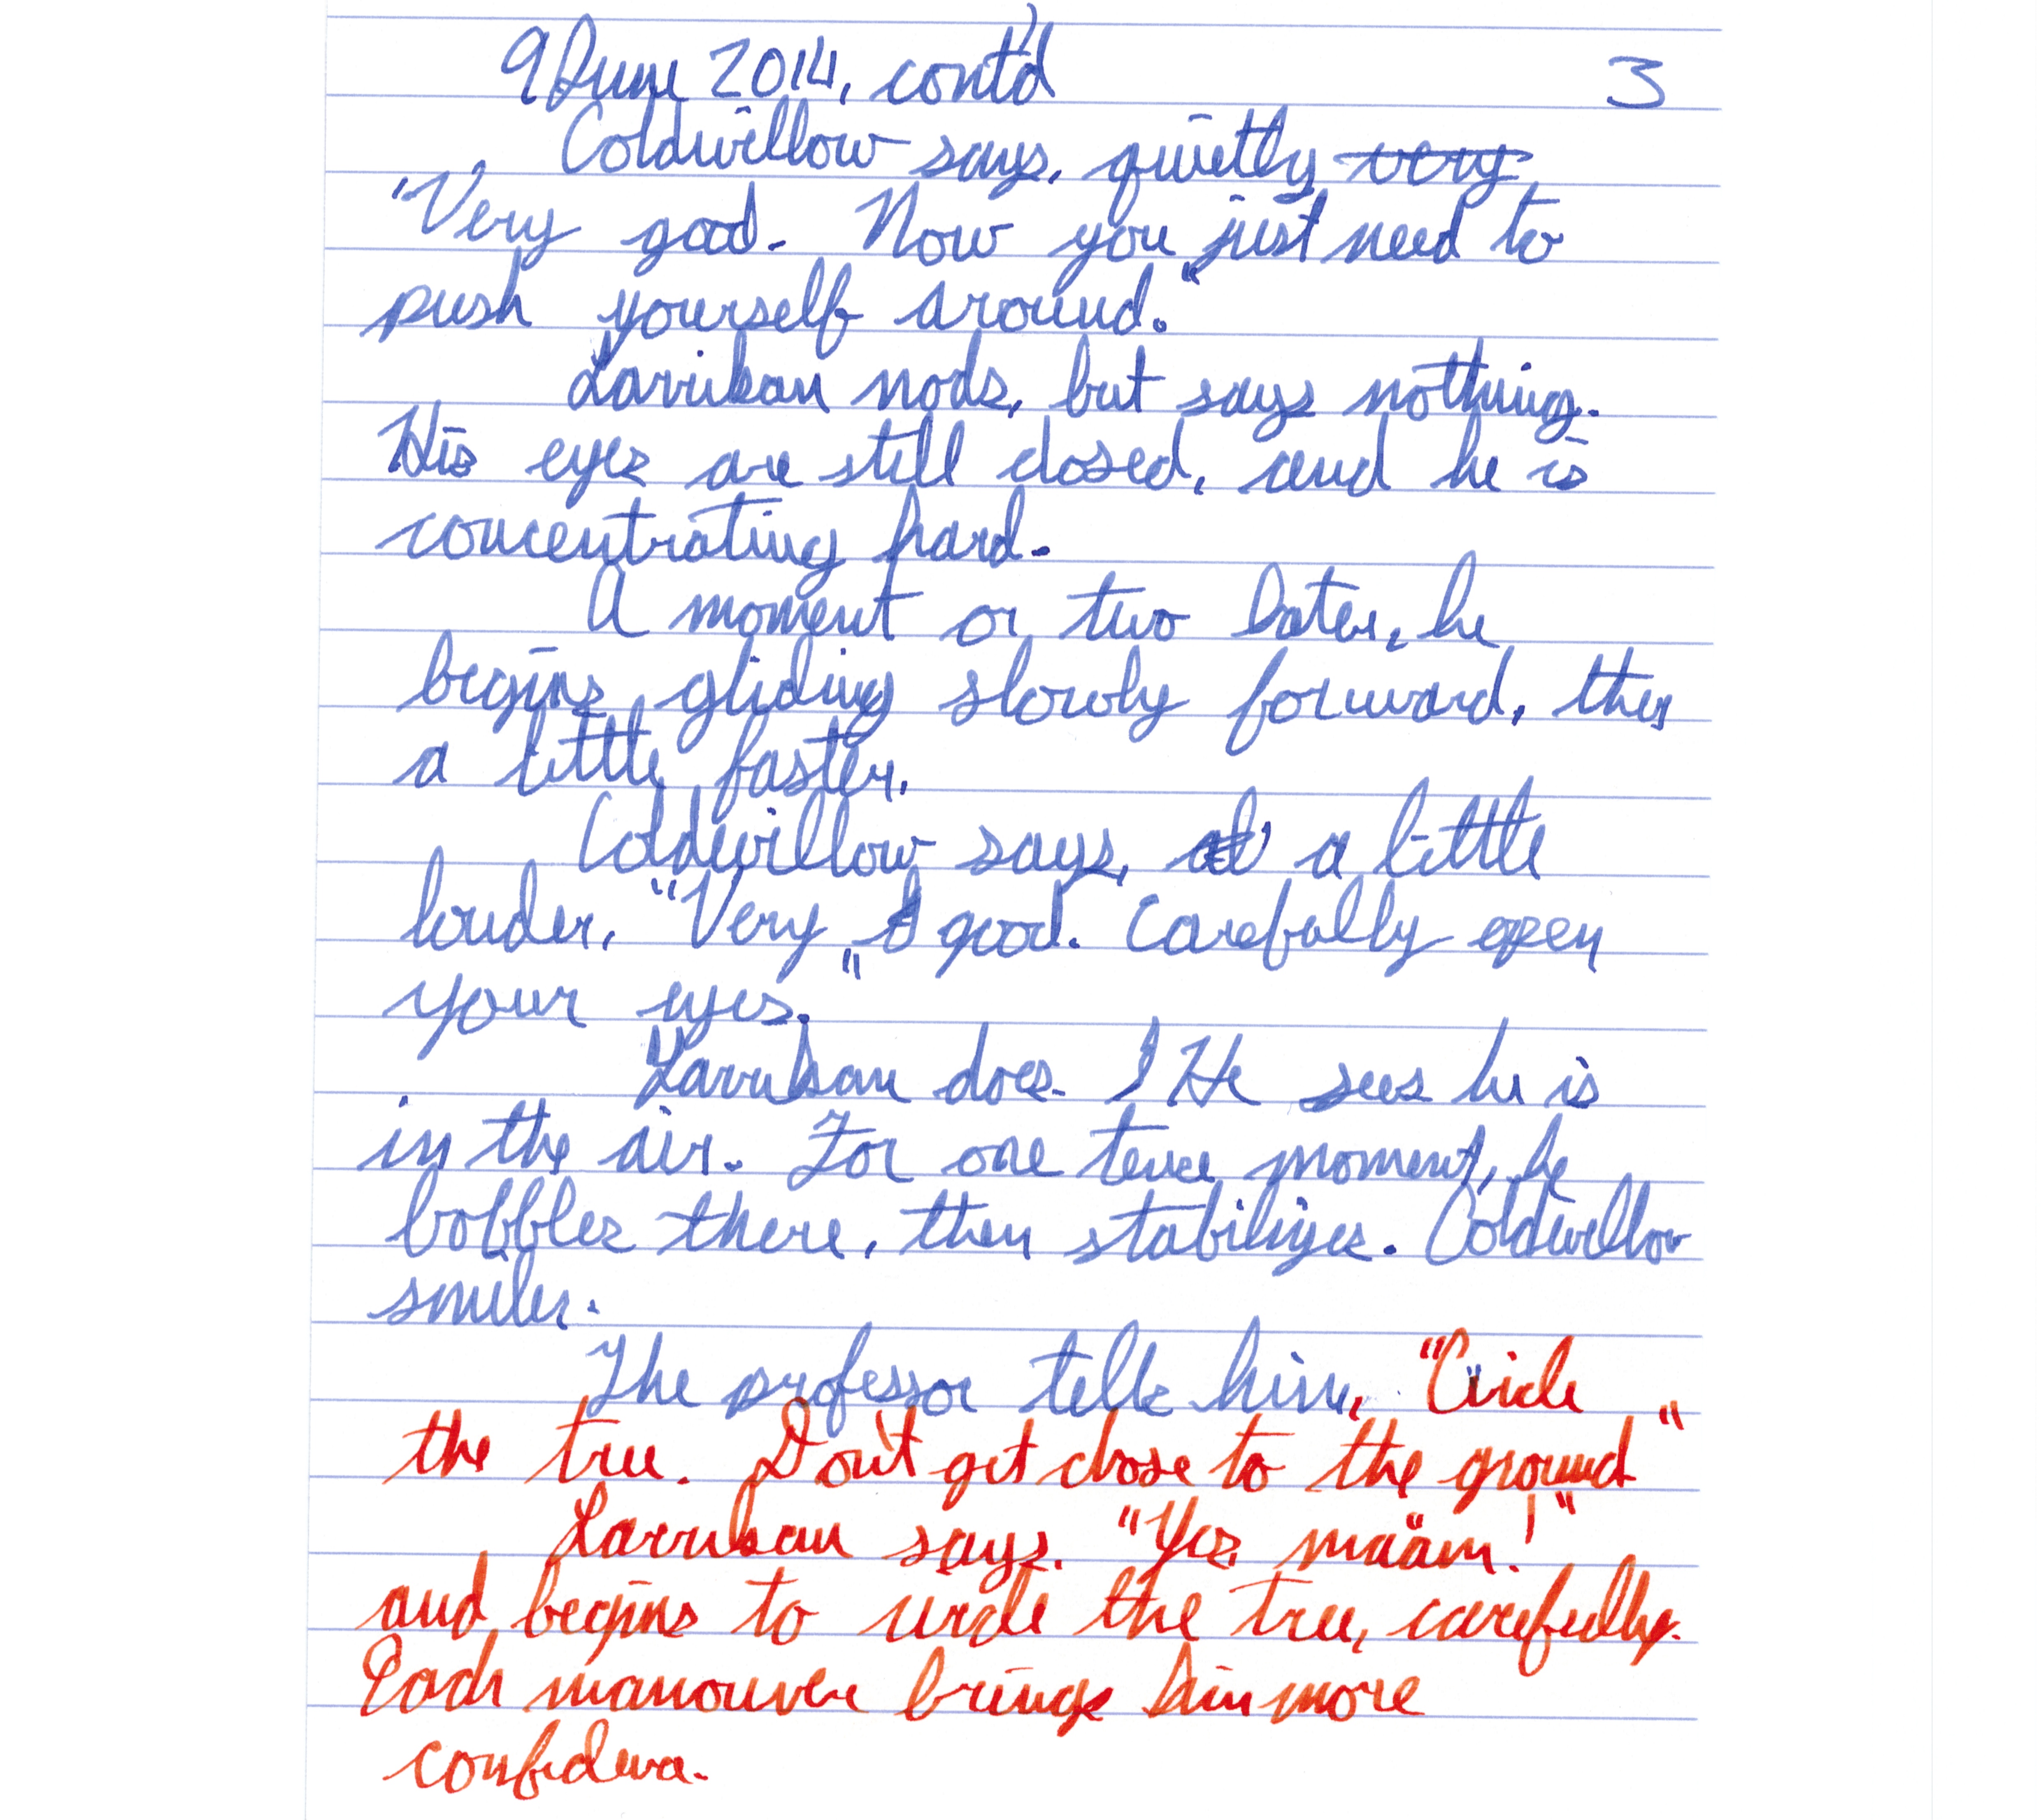 9 June 2014, cont'd 3
Coldwillow says, quietly very
"Very good. Now you just need to
push yourself around."
Larrikan nods, but says nothing.
His eyes are still closed, and he is
concentrating hard.
A moment or two later, he
begins gliding slowly forward, then
a little faster.
Coldwillow says, a little
louder, "Very good. Carefully open
your eyes."
Larrikan does. He sees he is
in the air. For one tense moment, he
bobbles there, then stabilizes. Coldwillow
smiles.
The professor tells him, "Circle
the tree. Don't get close to the ground"
Larrikan says, "Yes, ma'am!"
and begins to circle the tree, carefully.
Each manouver brings him more
confidence.